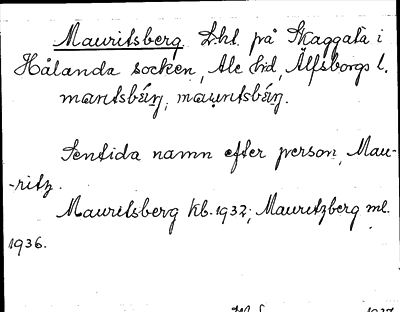 Mauritsberg Lht. på Skaggata i
Hålanda socken, Ale hd, Älfsborgs l.
maritsbárj, mauritsbárj.
Sentida namn efter person, Mau-
-ritz.
Mauritsberg kb. 1932; Mauritzberg ml.
1936.
1937